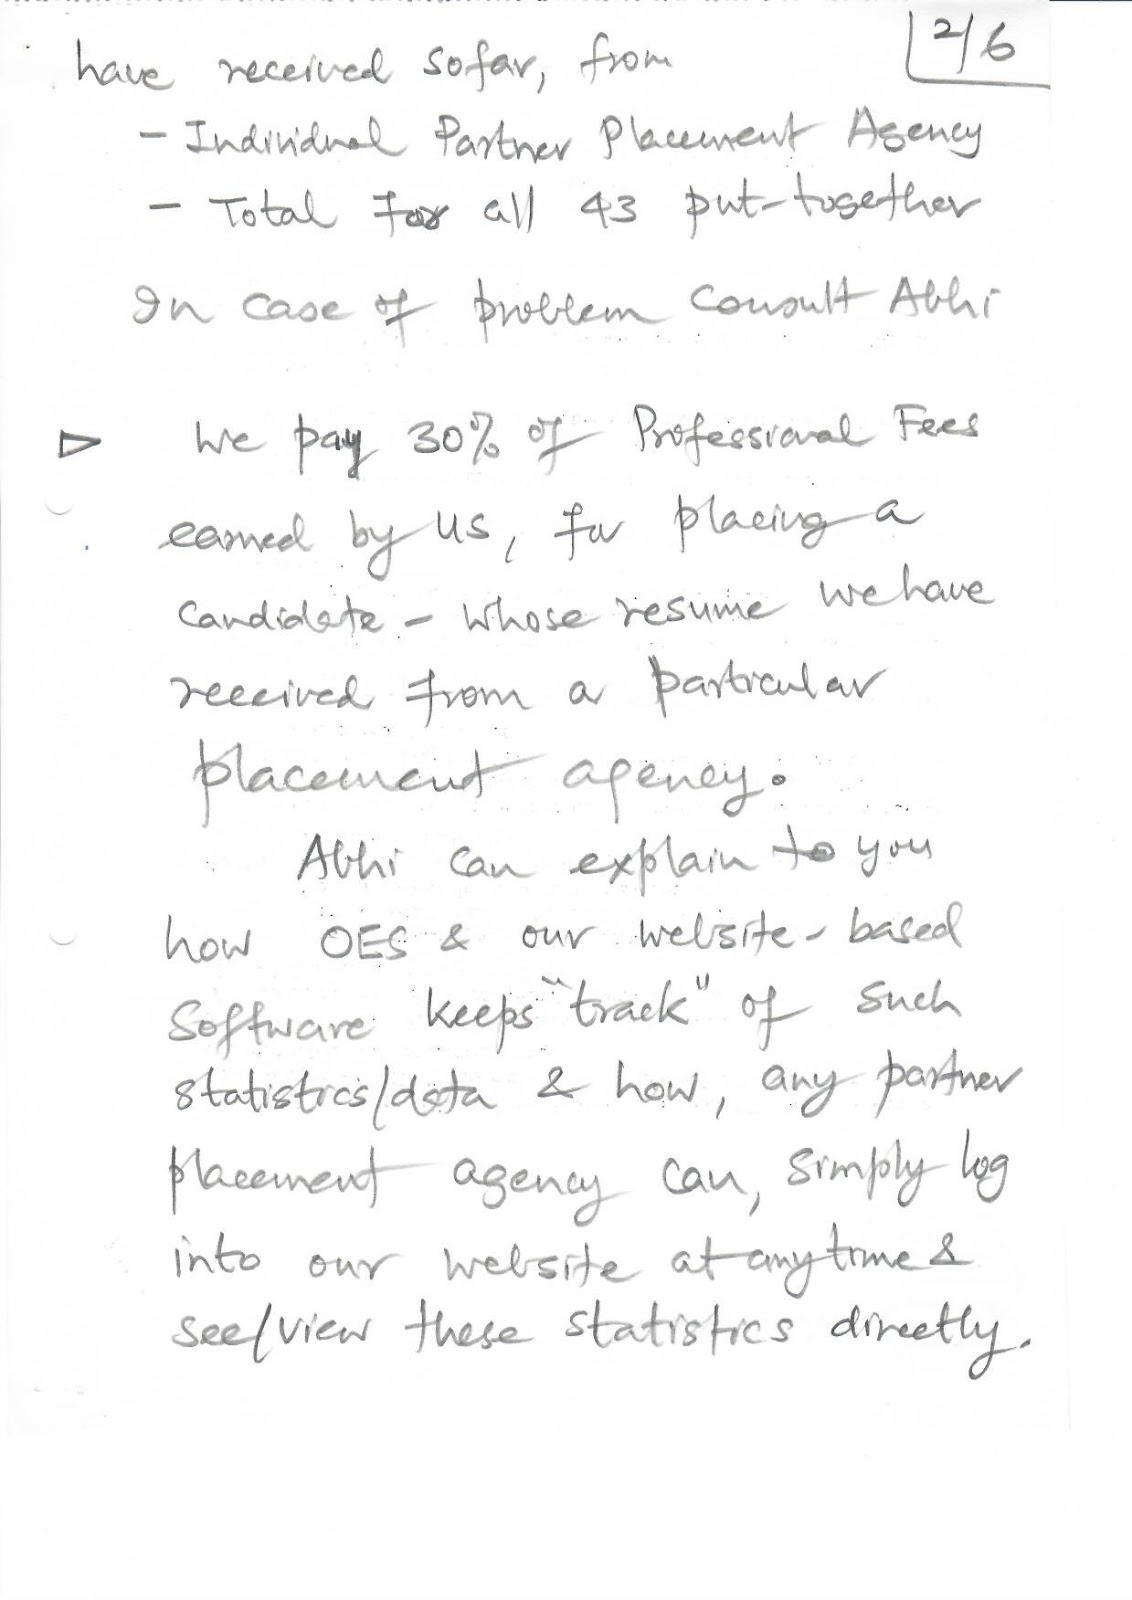 2/6
have received sofar, from
- Individual Partner Placement Agency
- Total for all 43 put-together
In case of problem consult Abhi
▷ We pay 30% of Professional Fees
earned by us, for placing a
candidate - whose resume we have
received from a particular
placement agency.
Abhi can explain to you
how OES & our website-based
Software keeps "track" of such
statistics/data & how, any partner
placement agency can, simply log
into our website at anytime &
see/view these statistics directly.